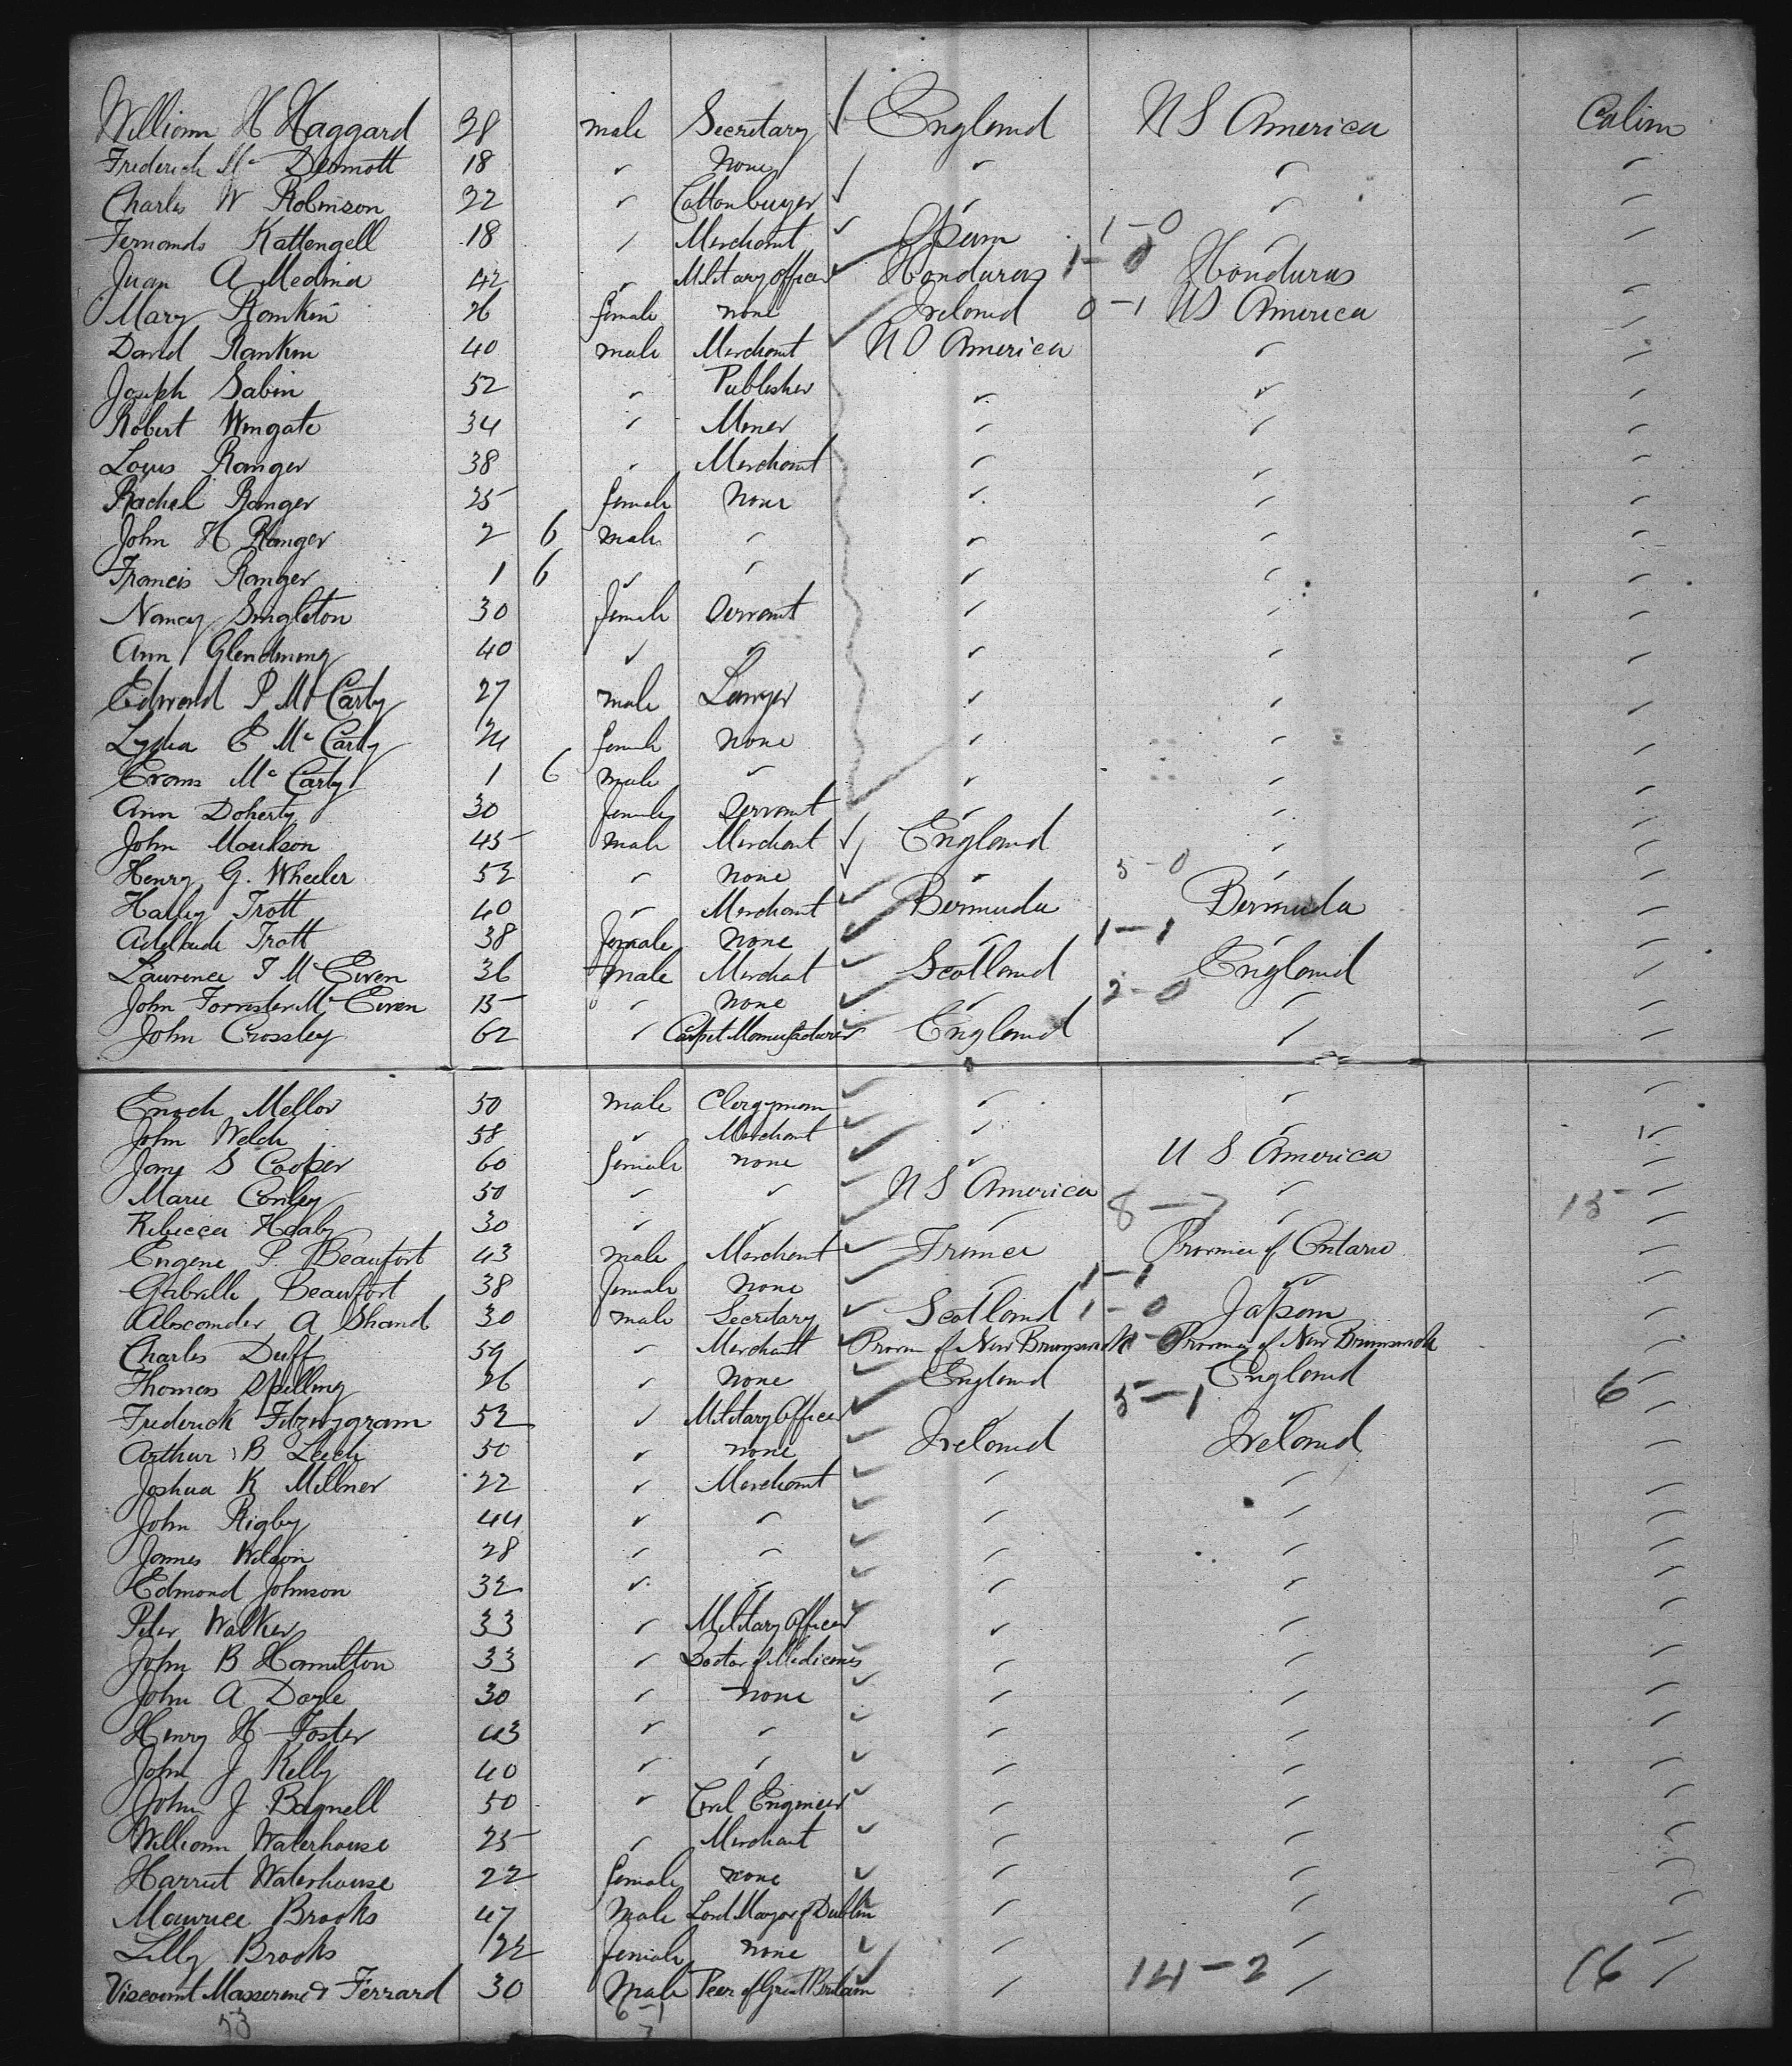 William H Haggard 38 male Secretary England U S America Cabin
Frederick Mc Dermott 18 " None " " "
Charles W Robinson 32 " Cottonbuyer " " "
Fernando Kattengell 18 " Merchant Spain 1-0 " "
Juan A Medina 42 " Military officer Honduras 1-0 Honduras "
Mary Rankin 26 female none Ireland 0-1 US America "
David Rankin 40 male Merchant U S America " "
Joseph Sabin 52 " Publisher " " "
Robert Wingate 34 " Miner " " "
Louis Ranger 38 " Merchant " " "
Rachel Ranger 25 female None " " "
John H Ranger 2 6 male " " " "
Francis Ranger 1 6 " " " " "
Nancy Singleton 30 female Servant " " "
Ann Glendining 40 " " " " "
Edward P McCarty 27 male Lawyer " " "
Lydia E McCarty 24 female none " " "
Evans McCarty 1 6 male " " " "
Ann Doherty 30 female Servant " " "
John Moulson 45 male Merchant England " "
Henry G. Wheeler 52 " none " 5-0 " "
Harley Trott 40 " Merchant Bermuda Bermuda "
Adelaide Trott 38 female none " 1-1 " "
Lawrence T McEwen 36 male Merchat Scotland England "
John Forrester McEwen 15 " none " 2-0 " "
John Crossley 62 " Carpet Manufacturer England " "
Enoch Mellor 50 male Clergyman " " "
John Welch 58 " Merchant " " "
Jane S Cooper 60 female none " U S America "
Marie Conley 50 " " U S America " "
Rebecca Healy 30 " " " 8-7 " 15 "
Eugene P. Beaufort 43 male Merchant France Province of Ontario "
Gabrielle Beaufort 38 female none " 1-1 " "
Alexander A Shand 30 male Secretary Scotland 1-0 Japan "
Charles Duff 59 " Merchant Provin of New Brunswick 1-0 Province of New Brunswick "
Thomas Spilling 26 " None England England "
Frederick Fitzwygram 52 " Military Officer " 5-1 " 6 "
Arthur B Leech 50 " none Ireland Ireland "
Joshua K Millner 22 " Merchant " " "
John Rigby 44 " " " " "
James Wilson 28 " " " " "
Edmond Johnson 32 " " " " "
Peter Walker 33 " Military Officer " " "
John B Hamilton 33 " Doctor of Medicines " " "
John A Doyle 30 " none " " "
Henry H Foster 43 " " " " "
John J Kelly 40 " " " " "
John J Bagnell 50 " Civil Engineer " " "
William Waterhouse 25 " Merchant " " "
Harriet Waterhouse 22 female none " " "
Maurice Brooks 47 Male Lord Mayor of Dublin " " "
Lilly Brooks 22 female none " " "
Viscount Massereene & Ferrard 30 Male Peer of Great Britain " 14-2 " 16 "
53 6-1
7